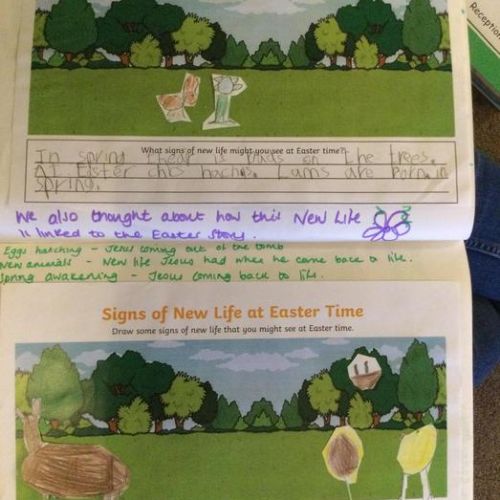 Reception
What signs of new life might you see at Easter time?
In spring thear is buds on the trees.
At Easter chis haches. Lams are born in
spring.
We also thought about how this New Life
is linked to the Easter Story.
Eggs hatching - Jesus coming out of the tomb
New animals - New life Jesus had when he came back to life.
Spring awakening - Jesus coming back to life.
Signs of New Life at Easter Time
Draw some signs of new life that you might see at Easter time.